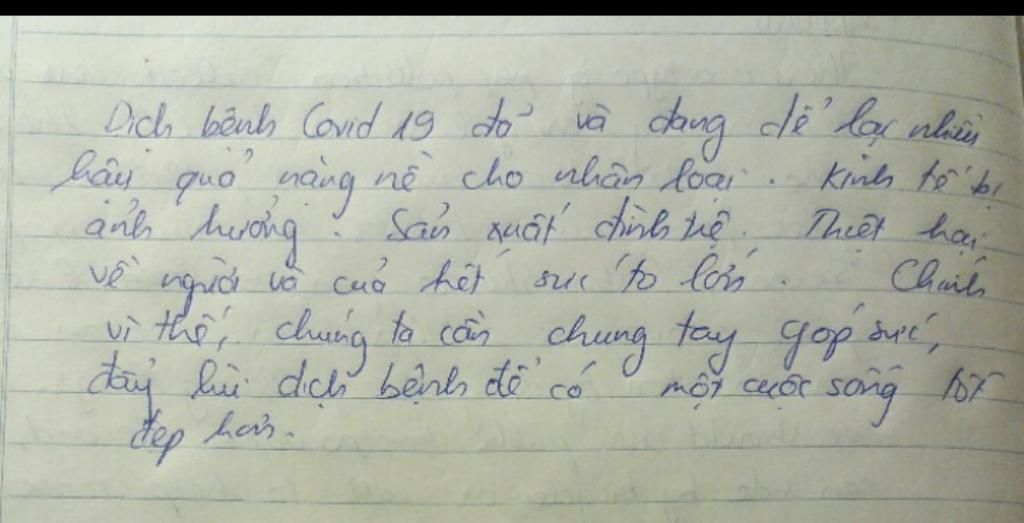 Dịch bệnh Covid 19 đã và đang để lại nhiều
hậu quả nặng nề cho nhân loại. Kinh tế bị
ảnh hưởng. Sản xuất đình trệ. Thiệt hại
về người và của hết sức to lớn. Chính
vì thế, chúng ta cần chung tay góp sức,
đẩy lùi dịch bệnh để có một cuộc sống tốt
đẹp hơn.